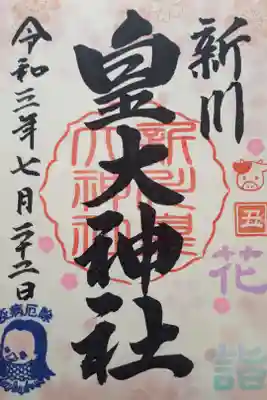 新川
皇大神社
令和三年七月二十二日
新川皇
大神社
丑
花
詣
疫病厄除